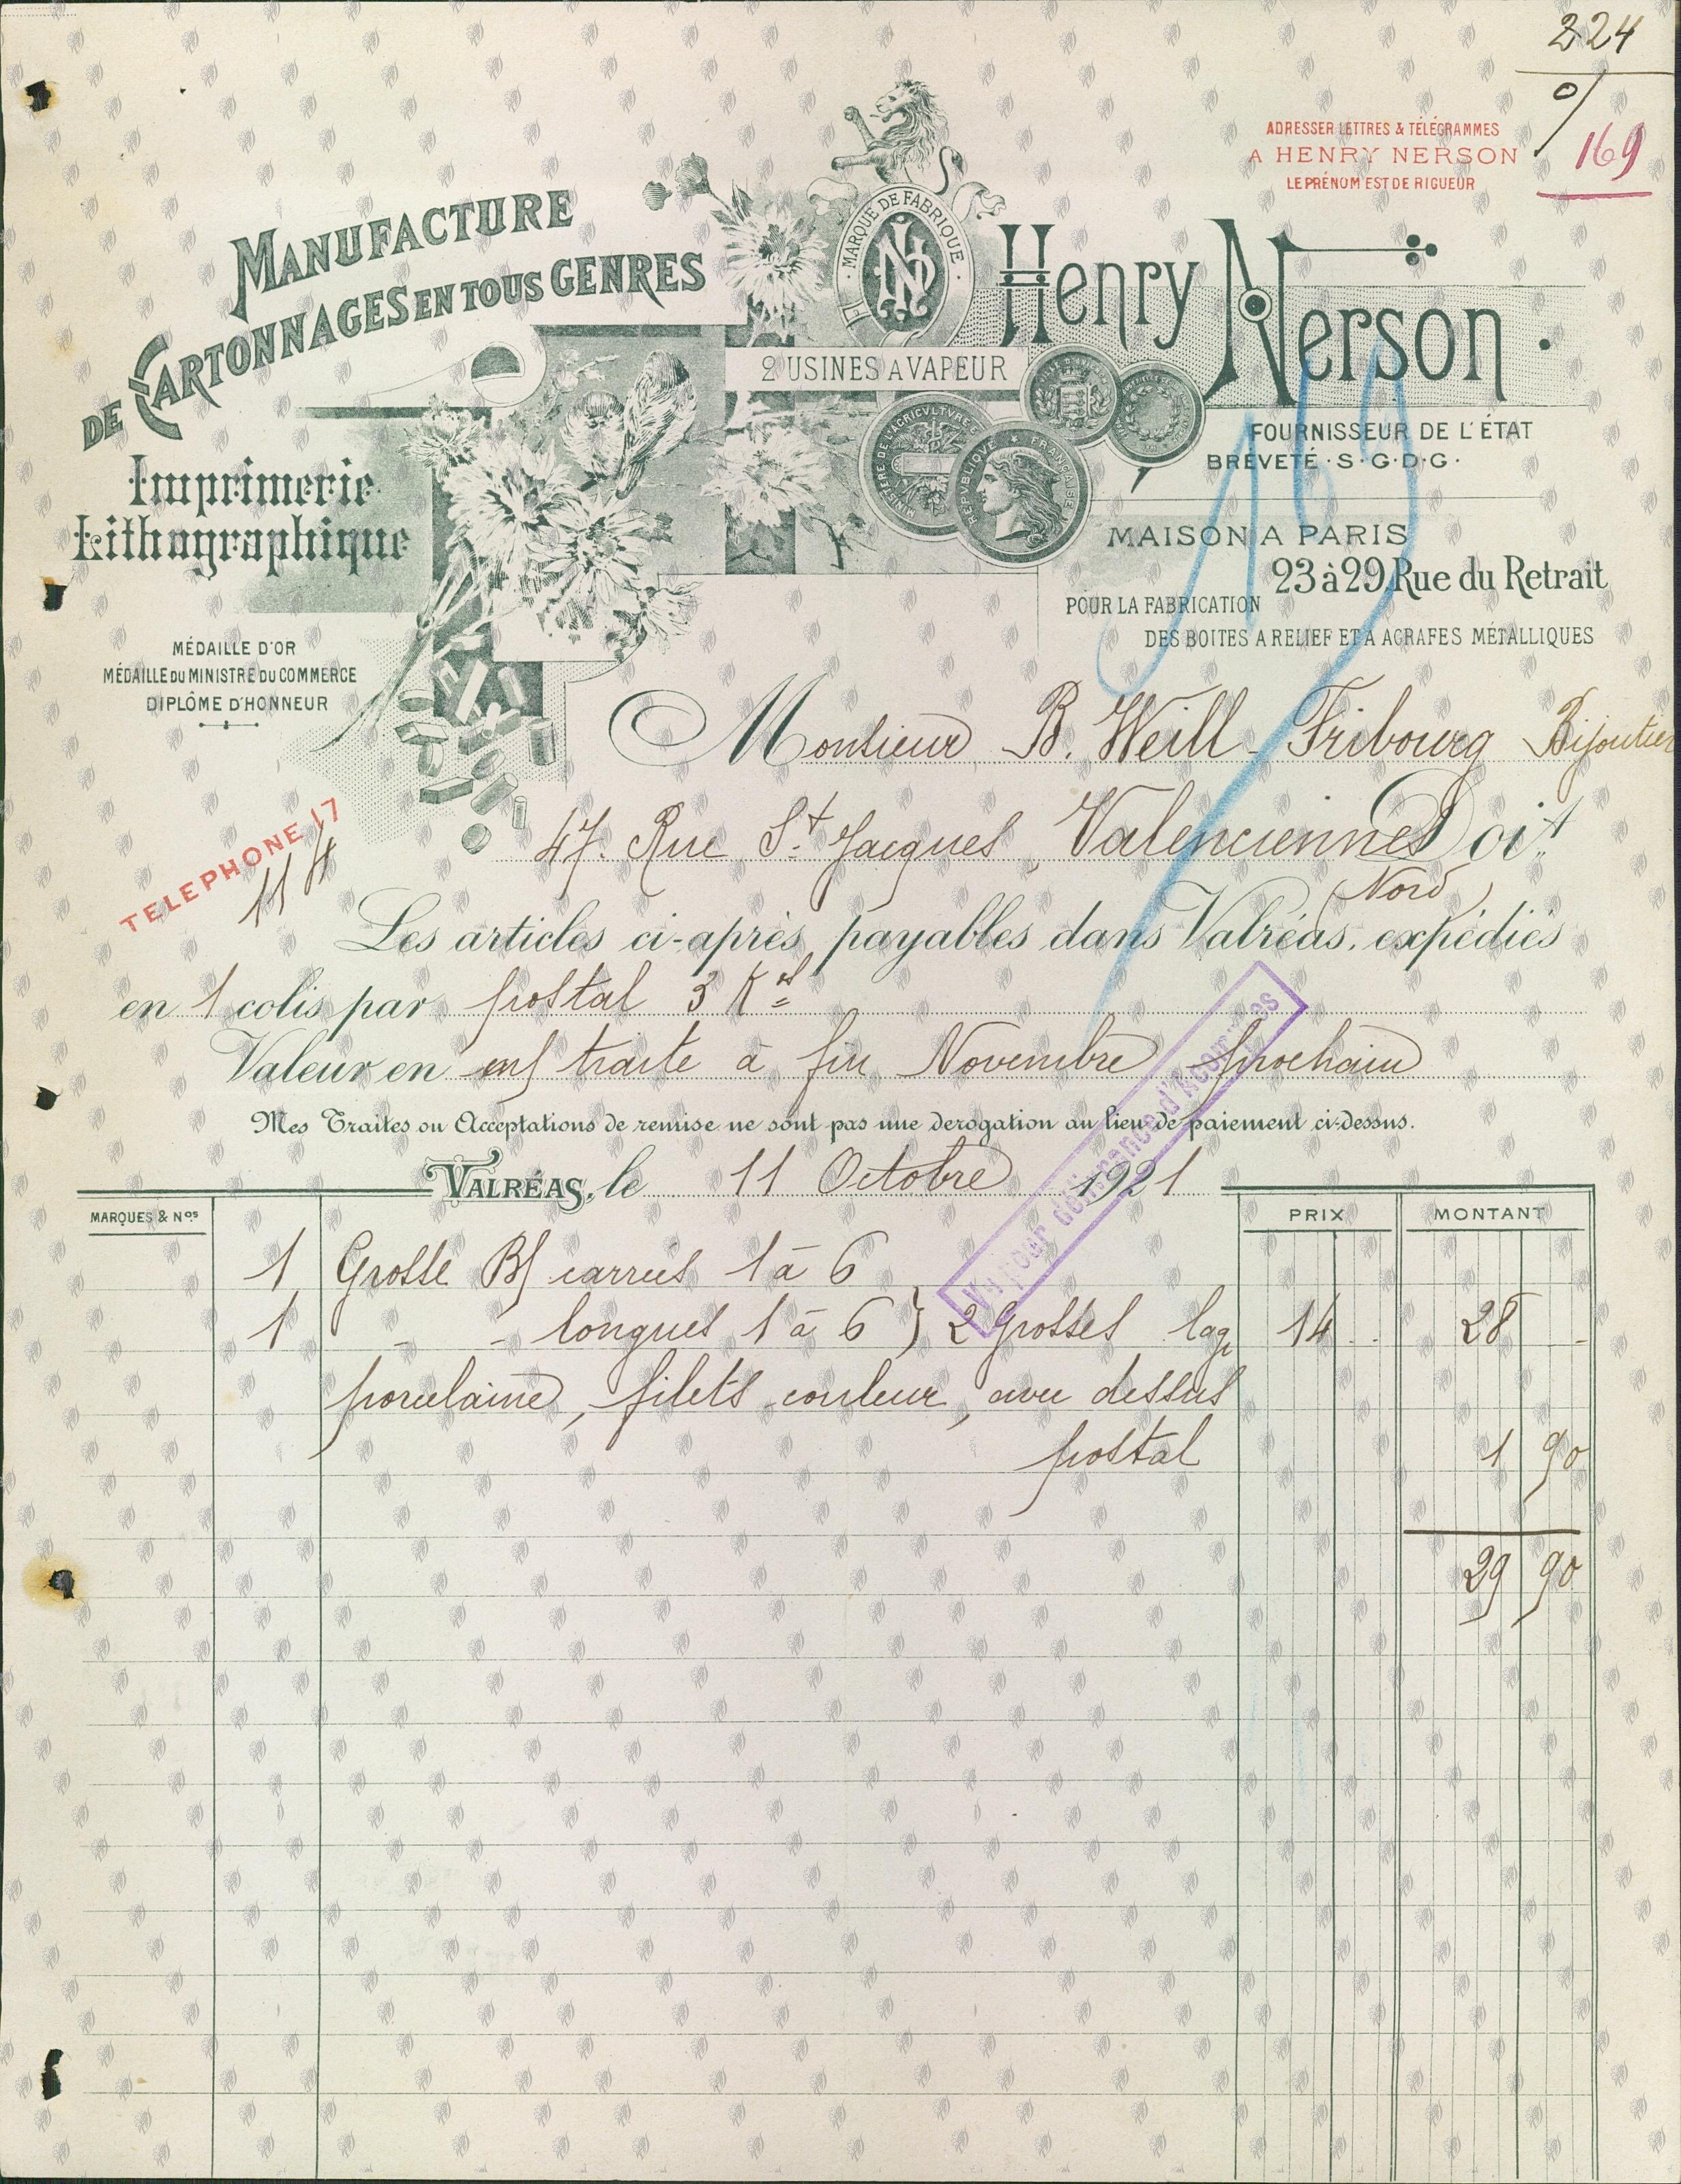 224
0/
169
ADRESSER LETTRES & TÉLÉGRAMMES
A HENRY NERSON
LE PRÉNOM EST DE RIGUEUR
MANUFACTURE
DE CARTONNAGES EN TOUS GENRES
MARQUE DE FABRIQUE
HN
Henry Nerson
2 USINES A VAPEUR
MINISTERE DE L'AGRICVLTVRE
REPVBLIQVE FRANÇAISE
FOURNISSEUR DE L'ÉTAT
BREVETÉ · S · G · D · G ·
Imprimerie
Lithographique
MAISON A PARIS
23 à 29, Rue du Retrait
POUR LA FABRICATION
DES BOITES A RELIEF ET A AGRAFES MÉTALLIQUES
MÉDAILLE D'OR
MÉDAILLE DU MINISTRE DU COMMERCE
DIPLÔME D'HONNEUR
Monsieur B. Weill-Fribourg Bijoutier
47. Rue St. Jacques, Valenciennes Doit
(Nord)
TELEPHONE 17
Les articles ci-après, payables dans Valréas, expédiés
en 1 colis par postal 3 Ks
Valeur en m/ traite à fin Novembre prochain
Mes Traites ou Acceptations de remise ne sont pas une derogation au lieu de paiement ci-dessus.
VALRÉAS, le 11 Octobre 1921
Vu pour délivrance d'Acomptes
MARQUES & Nos PRIX MONTANT
1 Grosse B/ carrées 1 à 6
1 - - longues 1 à 6 } 2 Grosses 14 .. 28 -
porcelaine, filets couleur, avec dessus
postal 1 90
29 90